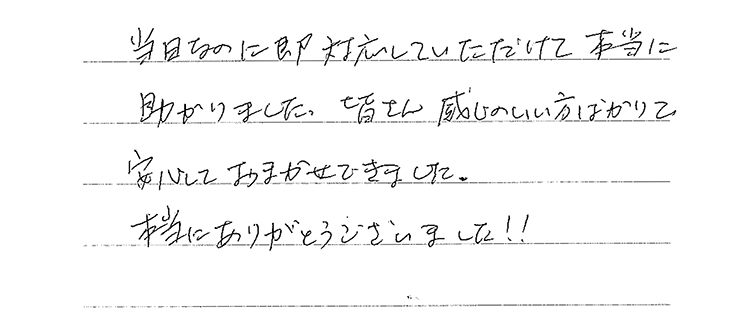 当日なのに即対応していただけて本当に
助かりました。皆さん感じのいい方ばかりで
安心しておまかせできました。
本当にありがとうございました!!